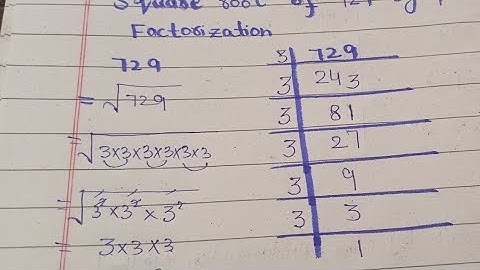 Square root of 729 by
Factorization
729
= √729
= √3×3×3×3×3×3
= √3²×3²×3²
= 3×3×3
3 729
3 243
3 81
3 27
3 9
3 3
1